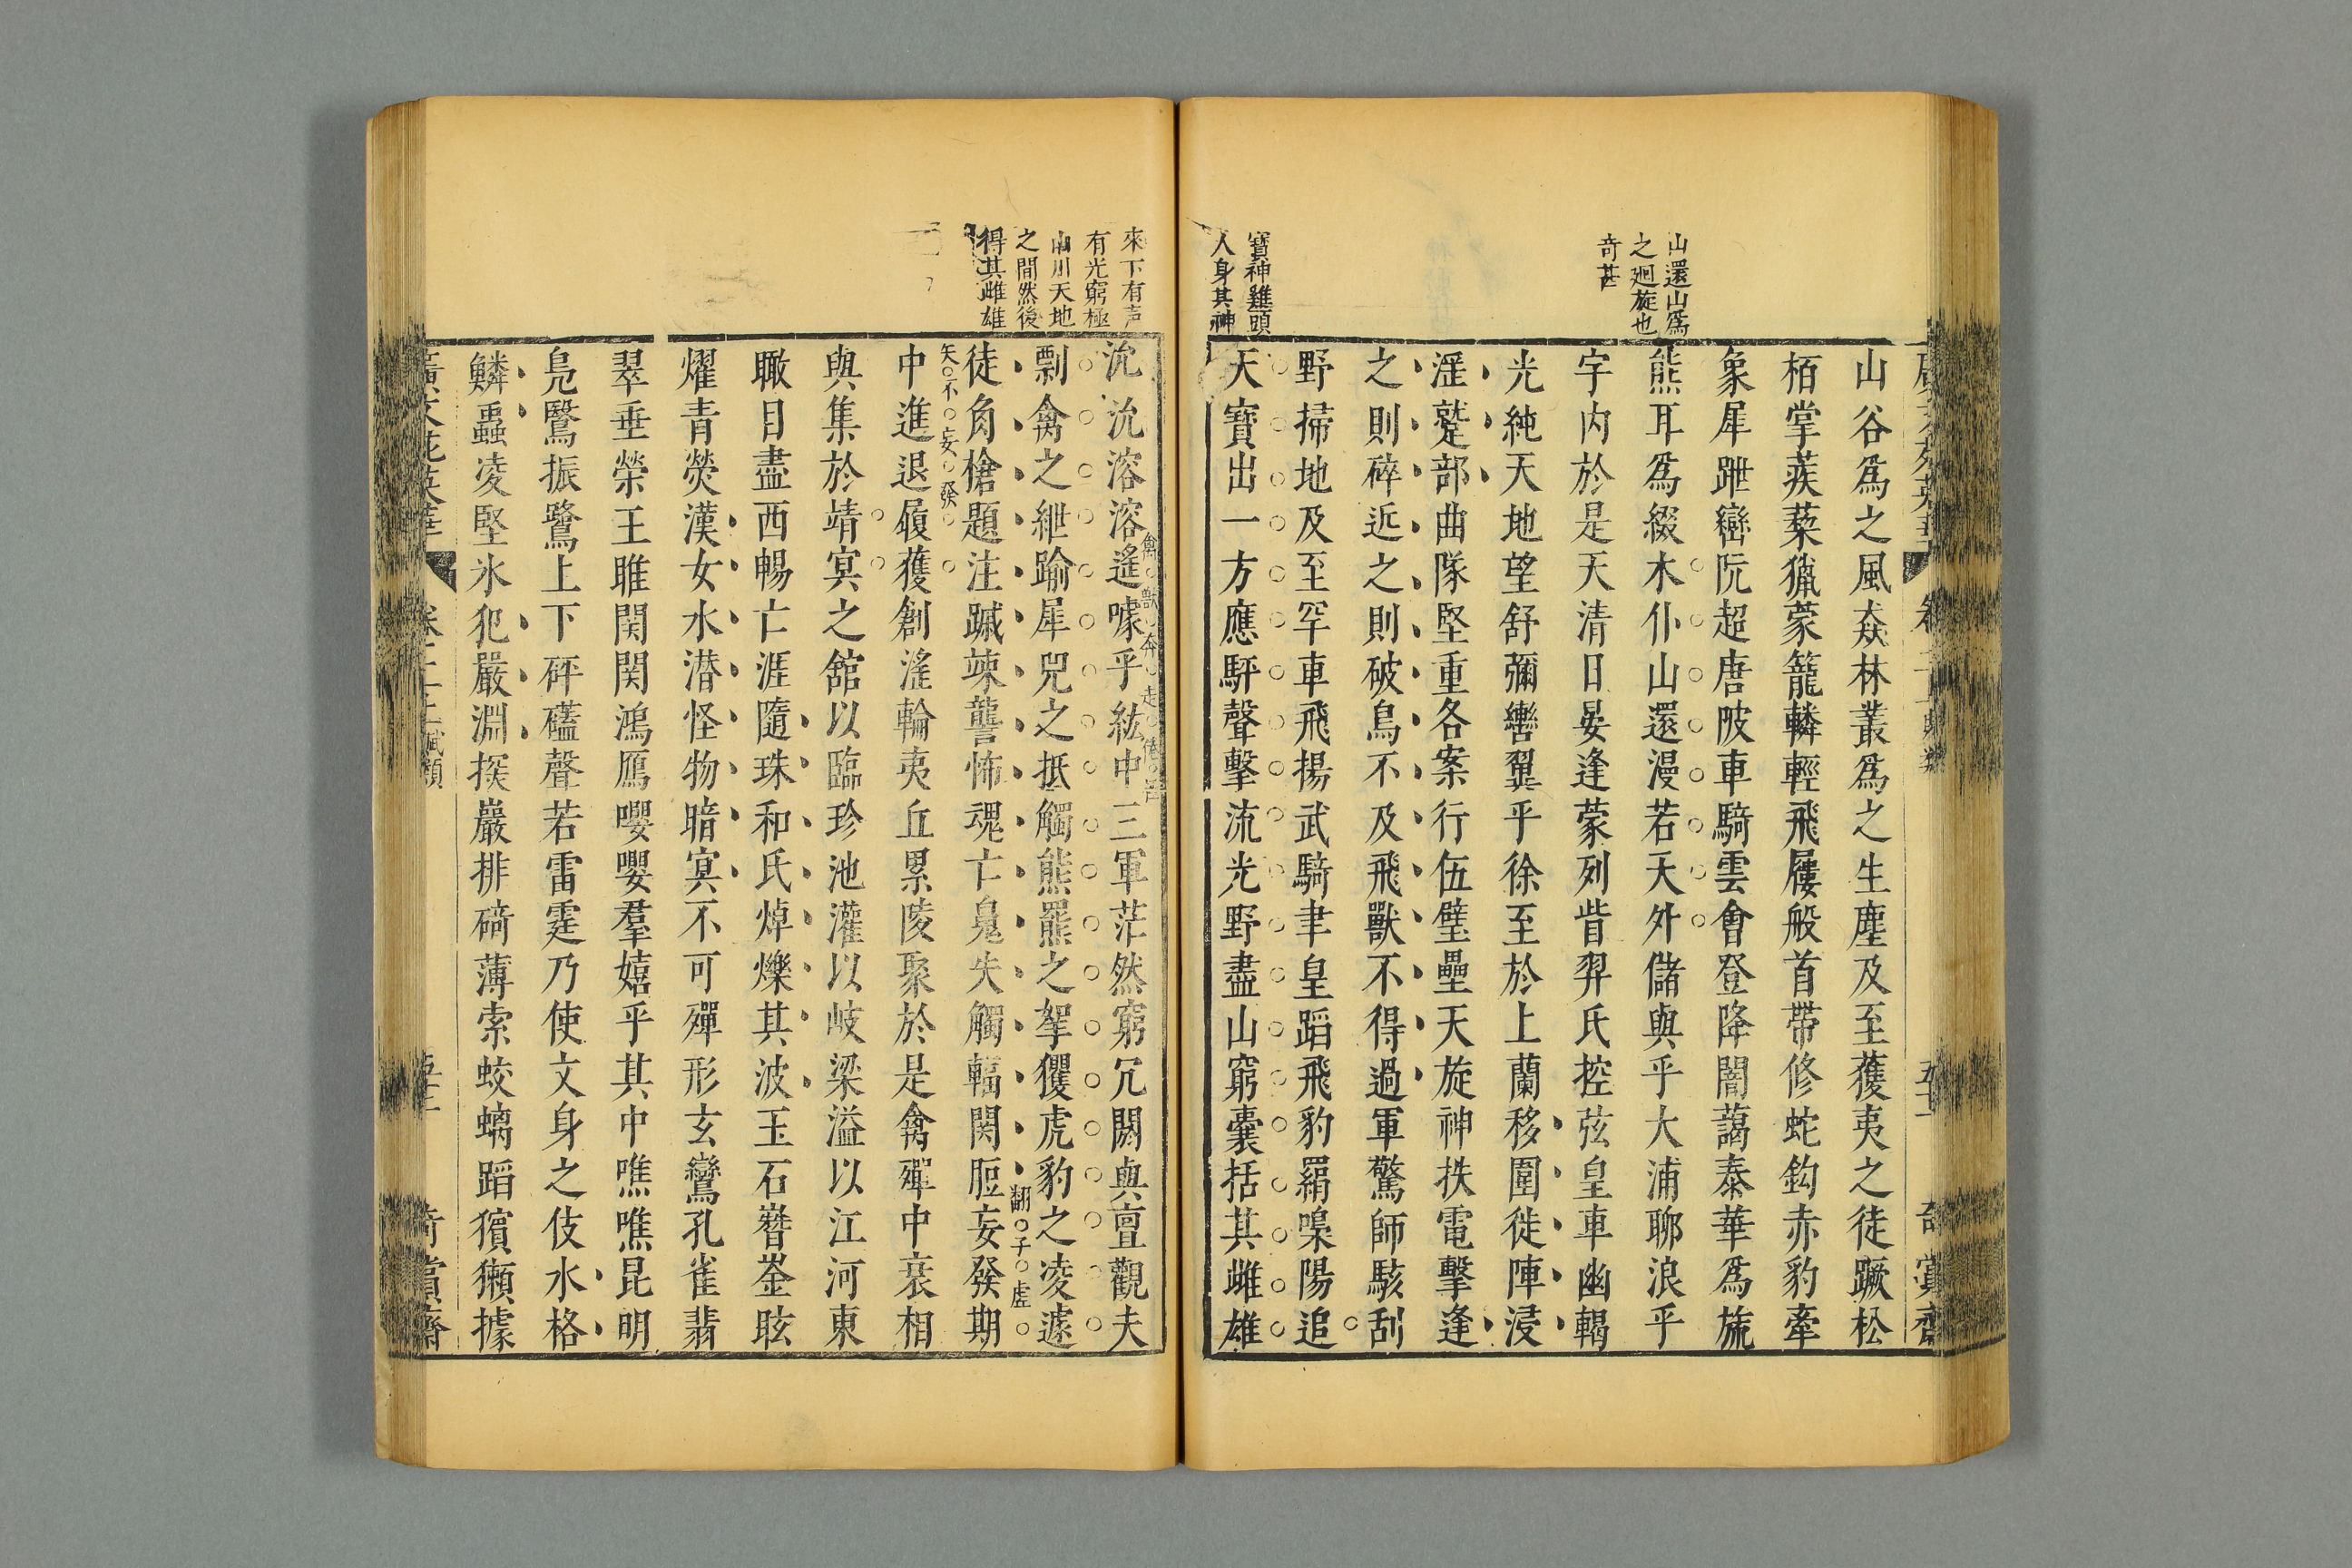 山還山爲
之廻旋也
奇甚
寶神雞頭
人身其神
山谷爲之風猋林叢爲之生塵及至獲夷之徒蹶松
栢掌蒺蔾獵蒙蘢轔輕飛屨般首帶修蛇鈎赤豹摼
象犀跇巒阬超唐陂車騎雲會登降闇藹泰華爲旒
熊耳爲綴木仆山還漫若天外儲與乎大浦聊浪乎
宇内於是天清日晏逢蒙列眥羿氏控弦皇車幽輵
光純天地望舒彌轡翼乎徐至於上蘭移圍徙陣浸
滛蹵部曲隊堅重各案行伍壁壘天旋神抶電擊逢
之則碎近之則破鳥不及飛獸不得過軍驚師駭刮
野掃地及至罕車飛揚武騎聿皇蹈飛豹羂嘄陽追
天寶出一方應駍聲擊流光野盡山窮囊括其雌雄
來下有声
有光窮極
山川天地
之間然後
得其雌雄
沇沇溶溶遙噱乎紘中三軍茫然窮冘閼與亶觀夫
剽禽之紲踰犀兕之抵觸熊羆之挐玃虎豹之凌遽
徒角槍題注䠞竦讋怖魂亡鬼失觸輻関脰妄發期
中進退履獲創滛輪夷丘累陵聚於是禽殫中衰相
與集於靖冥之舘以臨珍池灌以岐梁溢以江河東
瞰目盡西暢亡涯隨珠和氏焯爍其波玉石嶜崟眩
燿青熒漢女水潜怪物暗冥不可殫形玄鸞孔雀翡
翠垂榮王雎関関鴻鴈嚶嚶羣嬉乎其中噍噍昆明
鳧鷖振鷺上下砰礚聲若雷霆乃使文身之伎水格
鱗蟲凌堅氷犯嚴淵探巖排碕薄索蛟螭蹈獱獺據